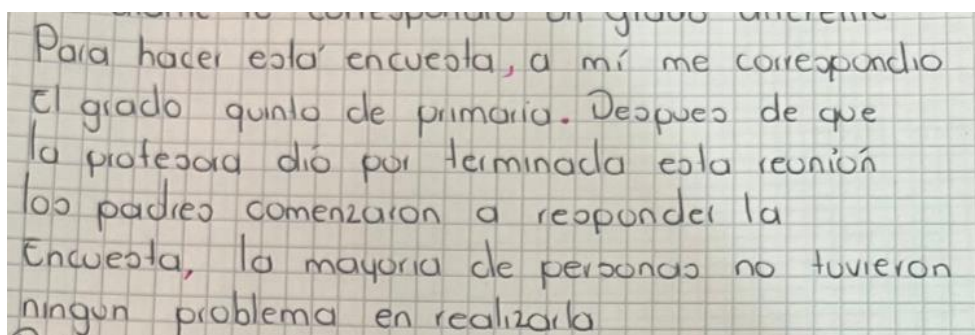 Para hacer está encuesta, a mí me correspondio
El grado quinto de primaria. Despues de que
la profesora dió por terminada esta reunión
los padres comenzaron a responder la
Encuesta, la mayoria de personas no tuvieron
ningun problema en realizarla